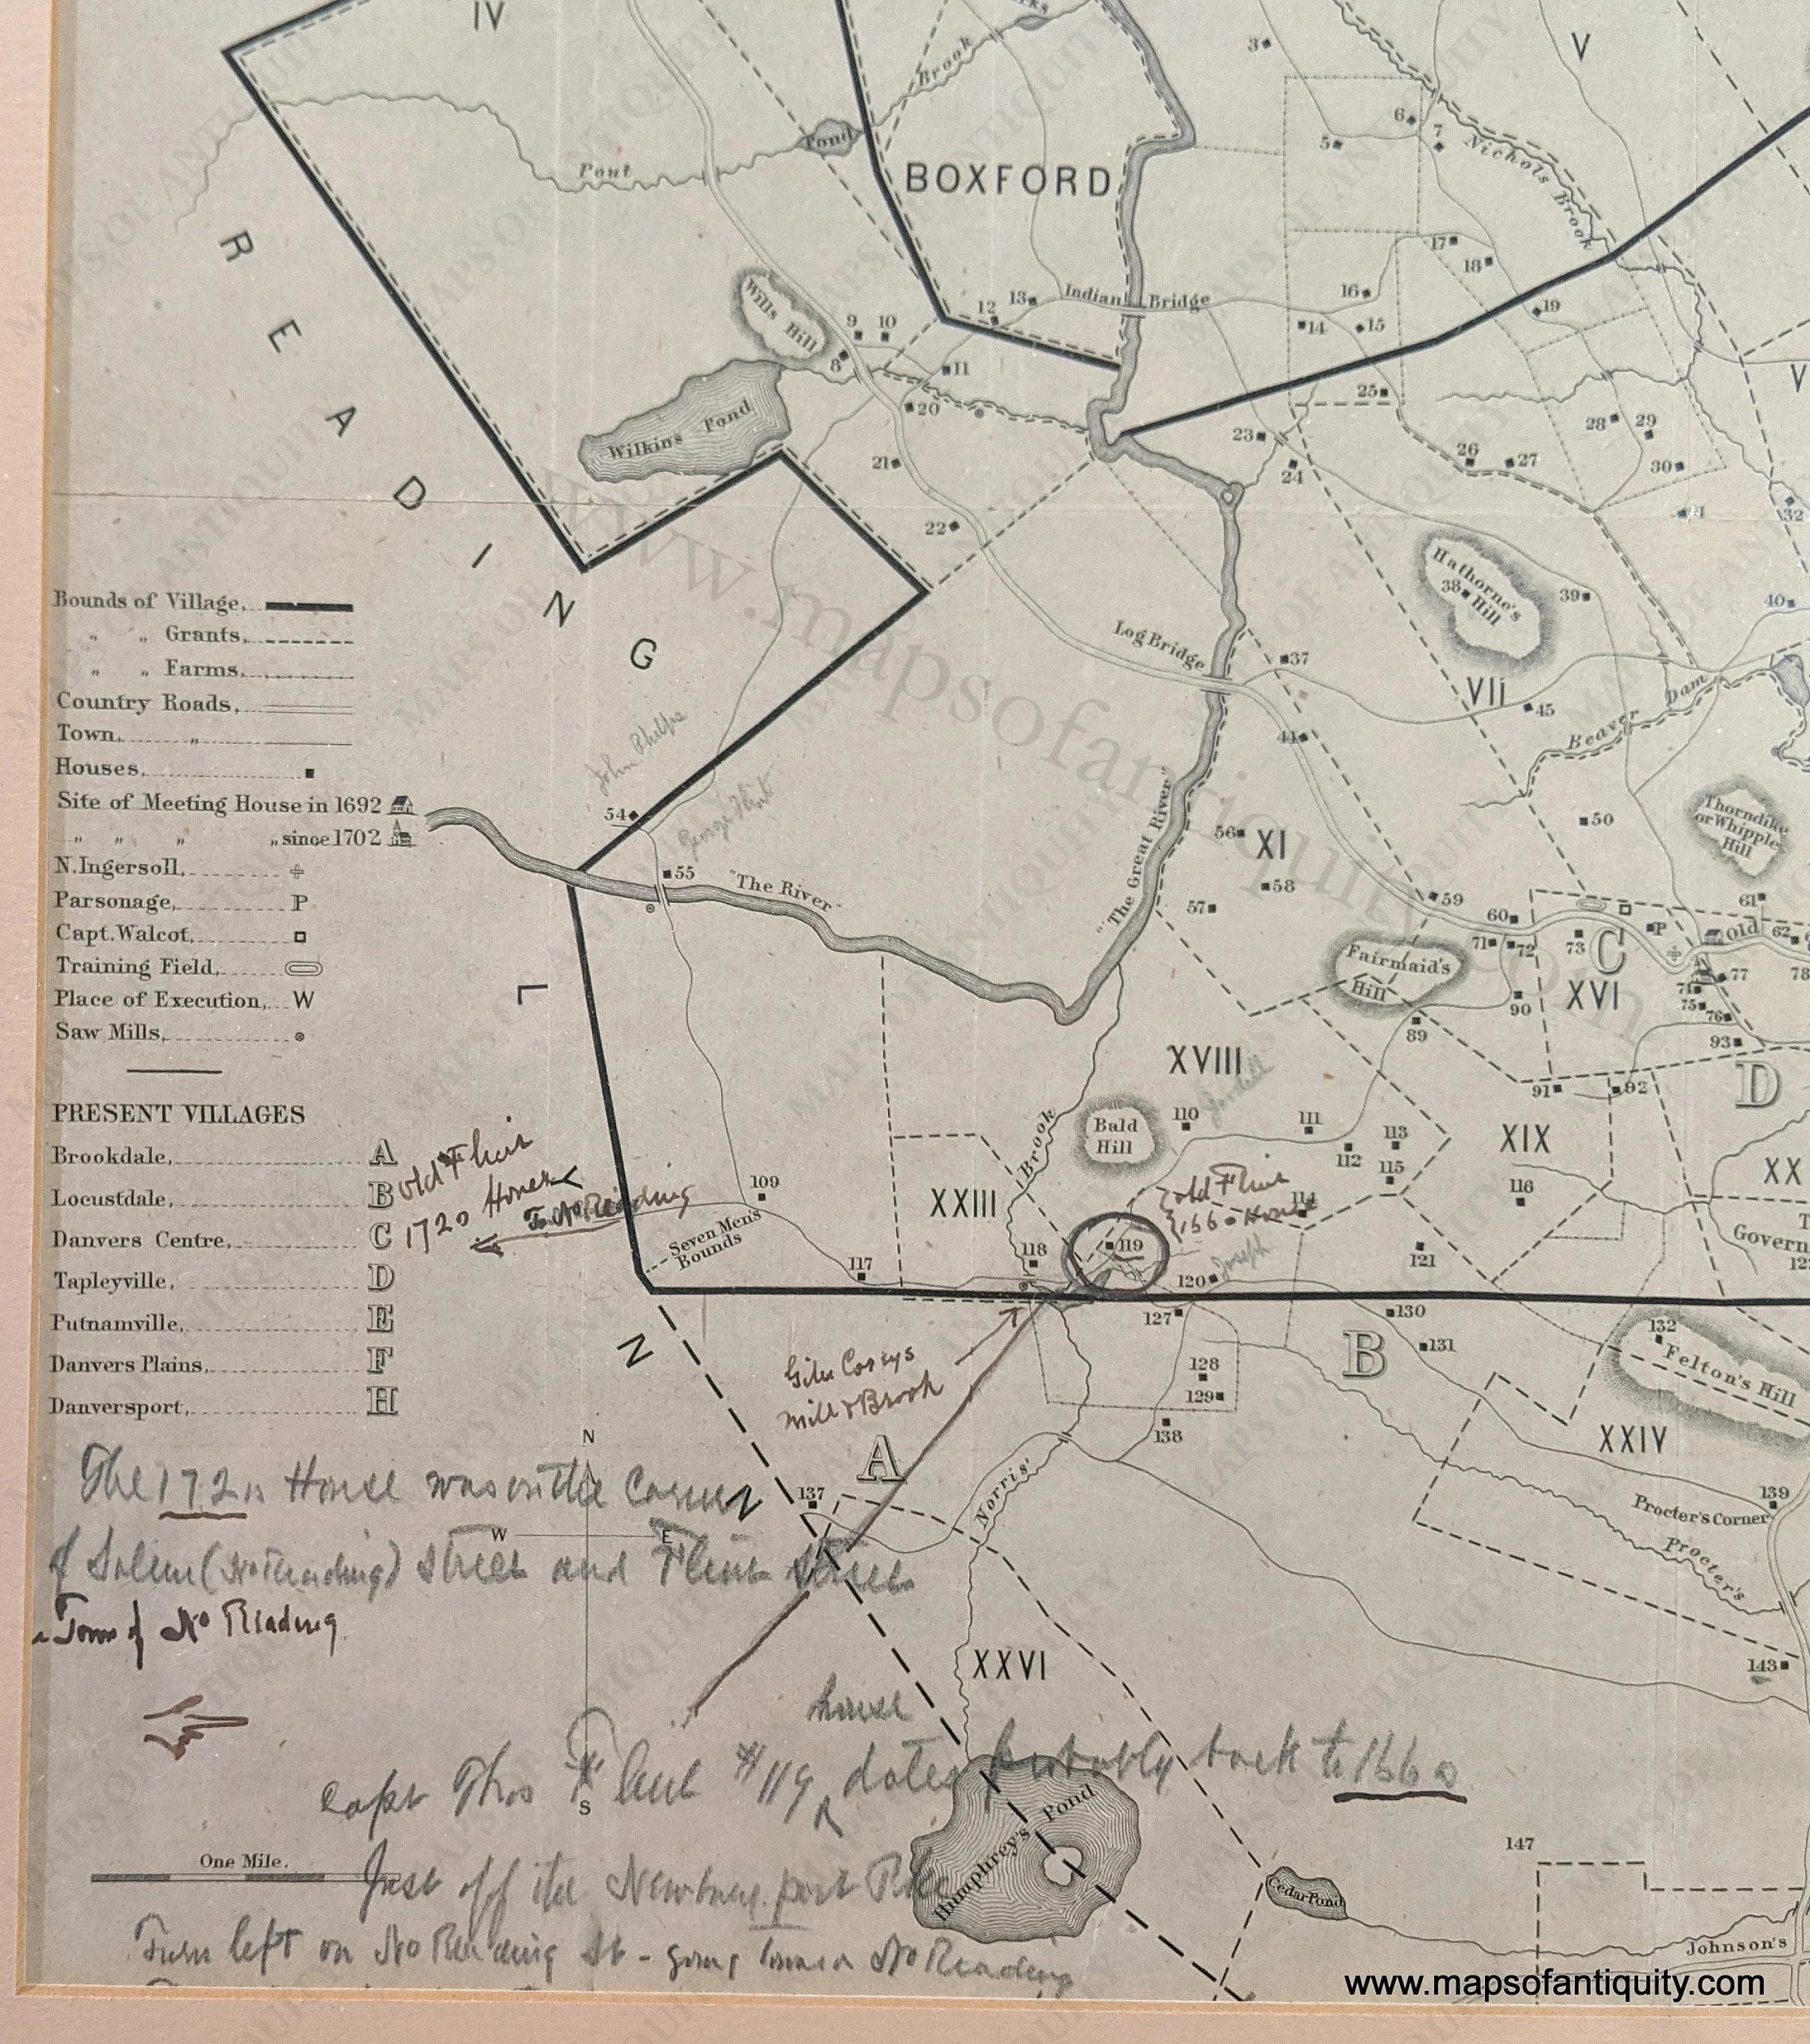 IV
V
3
Brook
6
7
5
Nichols Brook
Pond
Pout
BOXFORD
READING
17
18
16
19
13
Indian Bridge
12
14
15
Wills Hill
9
10
8
11
V
25
20
28
29
Wilkins Pond
23
26
27
30
21
24
22
32
Hathorne's
38 Hill
39
40
Bounds of Village,
" " Grants,
" " Farms,
Country Roads,
Town, "
Houses,
Site of Meeting House in 1692
" " " " since 1702
N. Ingersoll,
Parsonage, P
Capt. Walcot,
Training Field,
Place of Execution, W
Saw Mills,
Log Bridge
37
VII
45
Beaver Dam
44
John Phelps
George Flint
54
55
"The River"
"The Great River"
56
XI
58
57
50
Thorndike
or Whipple
Hill
59
60
61
71
72
73
C
P
Old
62
XVI
77
78
74
75
76
Fairmaid's
Hill
90
89
93
91
92
D
LYNN
XVIII
Bald
Hill
110
111
112
113
115
XIX
116
XX
114
PRESENT VILLAGES
Brookdale, A
Locustdale, B
Danvers Centre, C
Tapleyville, D
Putnamville, E
Danvers Plains, F
Danversport, H
old Flint
House
1720
To No Reading
109
Seven Men's
Bounds
117
XXIII
Brook
118
119
old Flint
1660 House
120
Joseph
121
Govern
127
128
129
130
131
B
132
Felton's Hill
XXIV
138
Giles Coreys
Mill & Brook
A
137
Norris'
139
Procter's Corner
Procter's
143
N
W
E
S
The 1720 House was on the Corner
of Salem (No Reading) Street and Flint Street
Town of No Reading
XXVI
house
Capt Thos Flint #119 dates probably back to 1660
One Mile.
Just off the Newburyport Pike
Turn left on No Reading St - going toward No Reading
Humphrey's Pond
Cedar Pond
147
Johnson's
www.mapsofantiquity.com
www.mapsofantiquity.com
MAPS OF ANTIQUITY